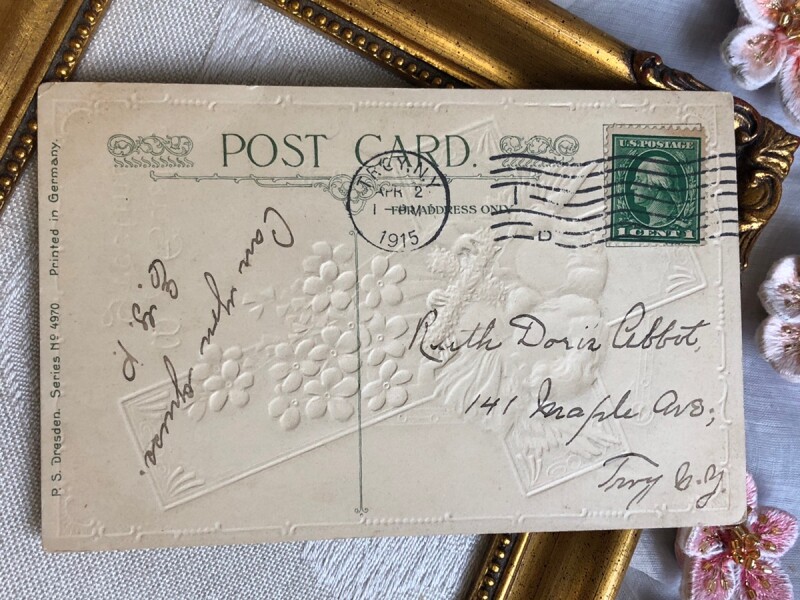 POST CARD.
TROY, N.Y.
APR 2
1 - PM
1915
FOR ADDRESS ONLY
U.S. POSTAGE
1 CENT 1
D
Can you guess.
E. G. P.
Ruth Doris Abbot,
141 Maple Ave;
Troy N.Y.
P. S. Dresden. Series Nº 4970 Printed in Germany.